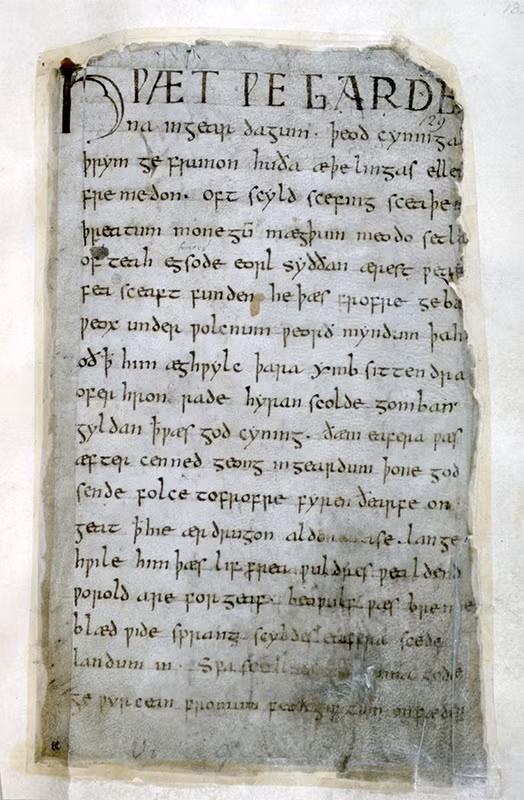 HǷÆT ǷE GARDE
na ingear dagum · þeod cyninga
þrym ge frunon huða æþelingas elle
fremedon. oft scyld scefing sceaþe
þreatum monegū mægþum meodo setla
of teah egsode eorl syððan ærest ƿear
fea sceaft funden heþæs frofre geba
ƿeox under ƿolcnum ƿeorð myndum þah
oðꝥ him æghƿylc þara ymb sittendra
ofer hron rade hyran scolde gomban
gyldan ꝥƿæs god cyning. ðæm eafera ƿæs
æfter cenned geong ingeardum þone god
sende folce tofrofre fyren ðearfe on
geat ꝥhie ær drugon aldor ase. lange
hƿile him þæs lif frea ƿuldres ƿealdend
ƿorold are forgeaf. beoƿulf ƿæs breme
blæd ƿide sprang scyldes eafera scede
landum in. Sƿa sceal ma gode
ge ƿyrcean fromum feoh giftum on fæder
129